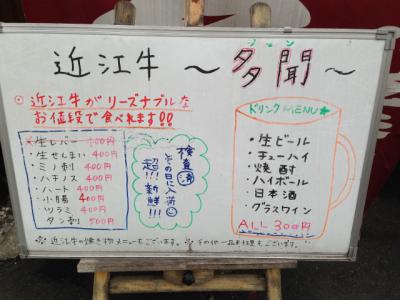 近江牛 ～ 多聞 ～
ジモン
◎ 近江牛がリーズナブルな
お値段で食べれます!!
生レバー 400円
・生せんまい 400円
・ミノ刺 400円
・ハチノス 400円
・ハート 400円
・小腸 400円
・ツラミ 400円
・タン刺 500円
検査済
その日に入荷
超!!!新鮮!!!
ドリンクMENU★
・生ビール
・チューハイ
・焼酎
・ハイボール
・日本酒
・グラスワイン
ALL 300円
※近江牛の焼き物メニューもございます。 ※その他一品料理もございます。